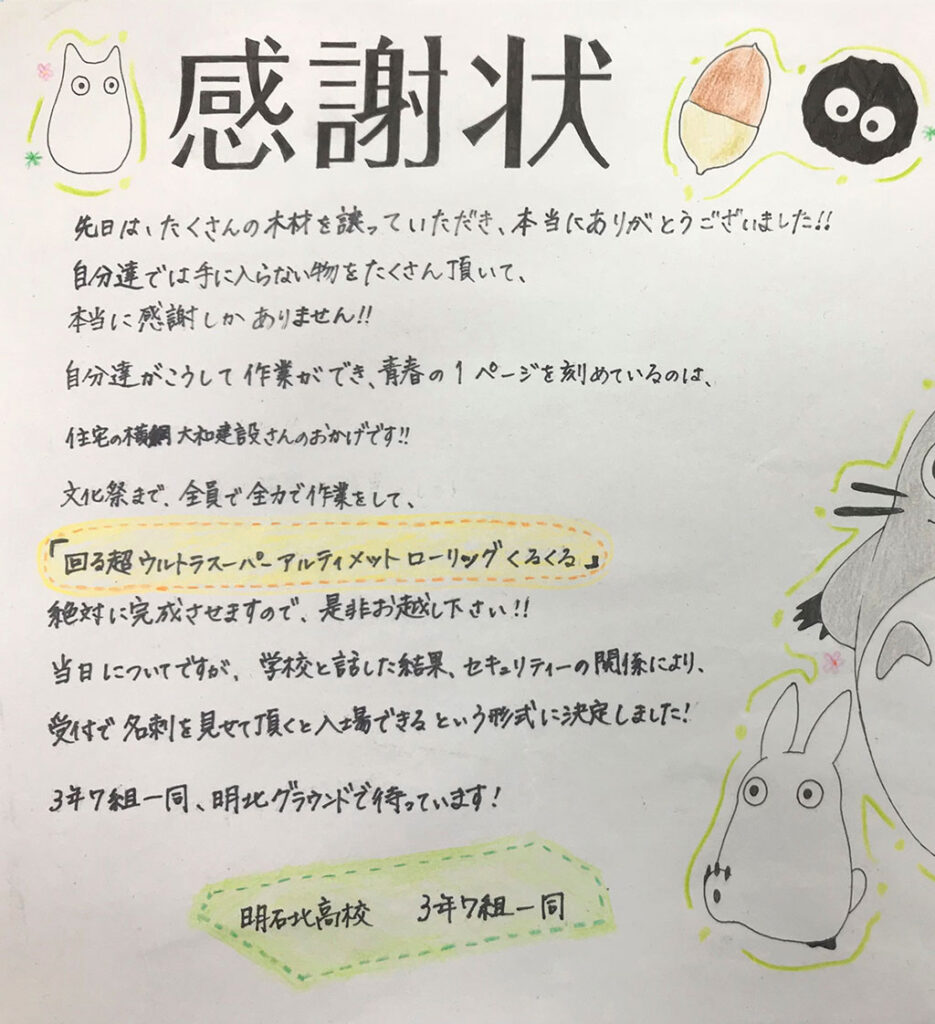 感謝状
先日は、たくさんの木材を譲っていただき、本当にありがとうございました!!
自分達では手に入らない物をたくさん頂いて、
本当に感謝しかありません!!
自分達がこうして作業ができ、青春の1ページを刻めているのは、
住宅の横綱大和建設さんのおかげです!!
文化祭まで、全員で全力で作業をして、
「回る超ウルトラスーパーアルティメットローリングくるくる」
絶対に完成させますので、是非お越し下さい!!
当日についてですが、学校と話した結果、セキュリティーの関係により、
受付で名刺を見せて頂くと入場できるという形式に決定しました!
3年7組一同、明北グラウンドで待っています!
明石北高校 3年7組一同